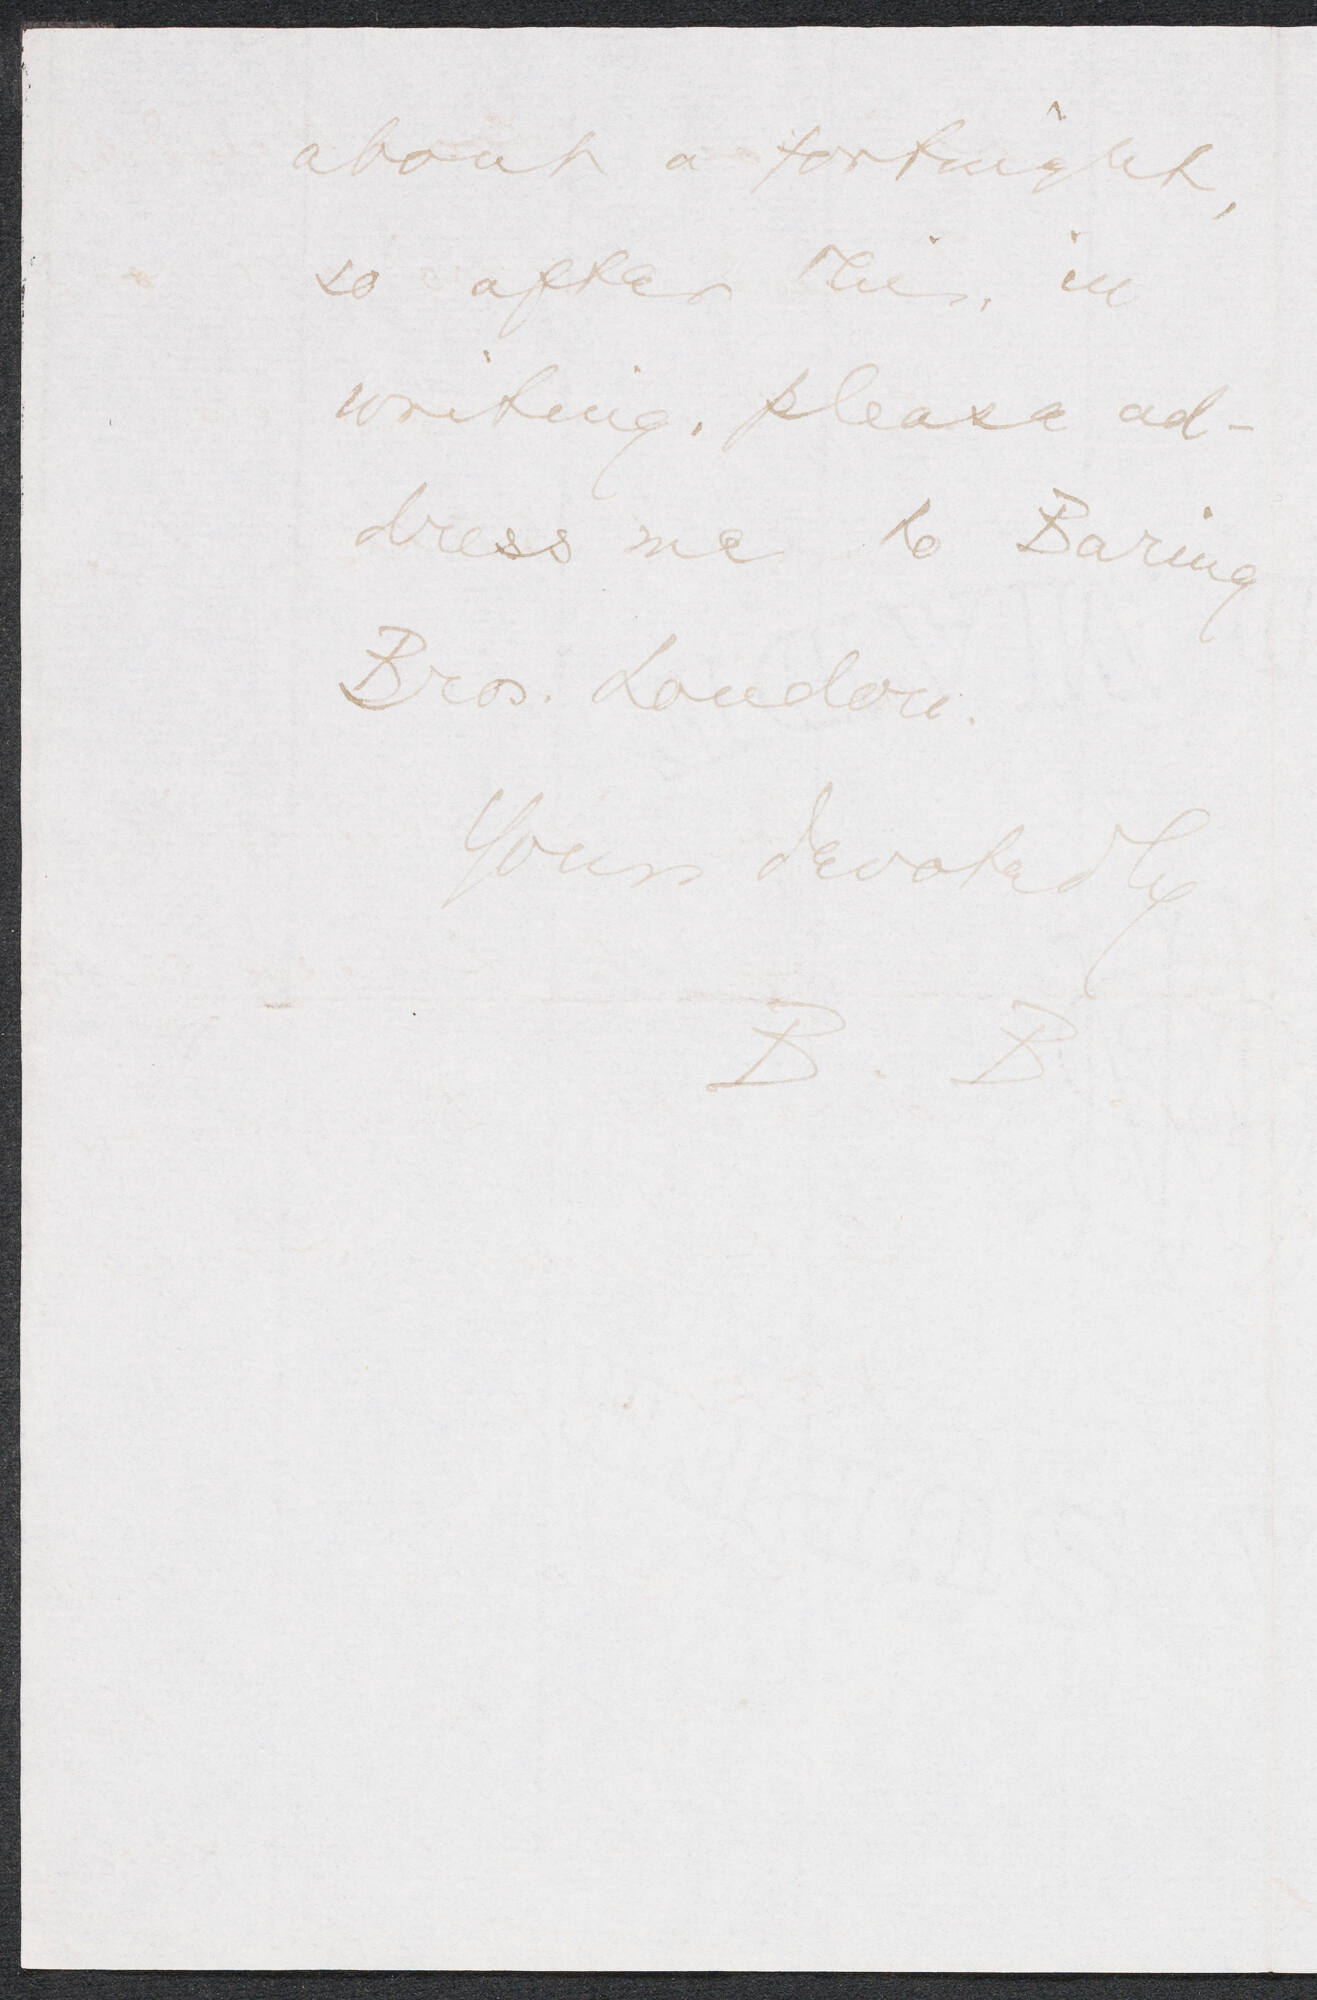 about a fortnight,
so after this, in
writing, please ad-
dress me to Baring
Bros. London.
Yours devotedly
B. B.